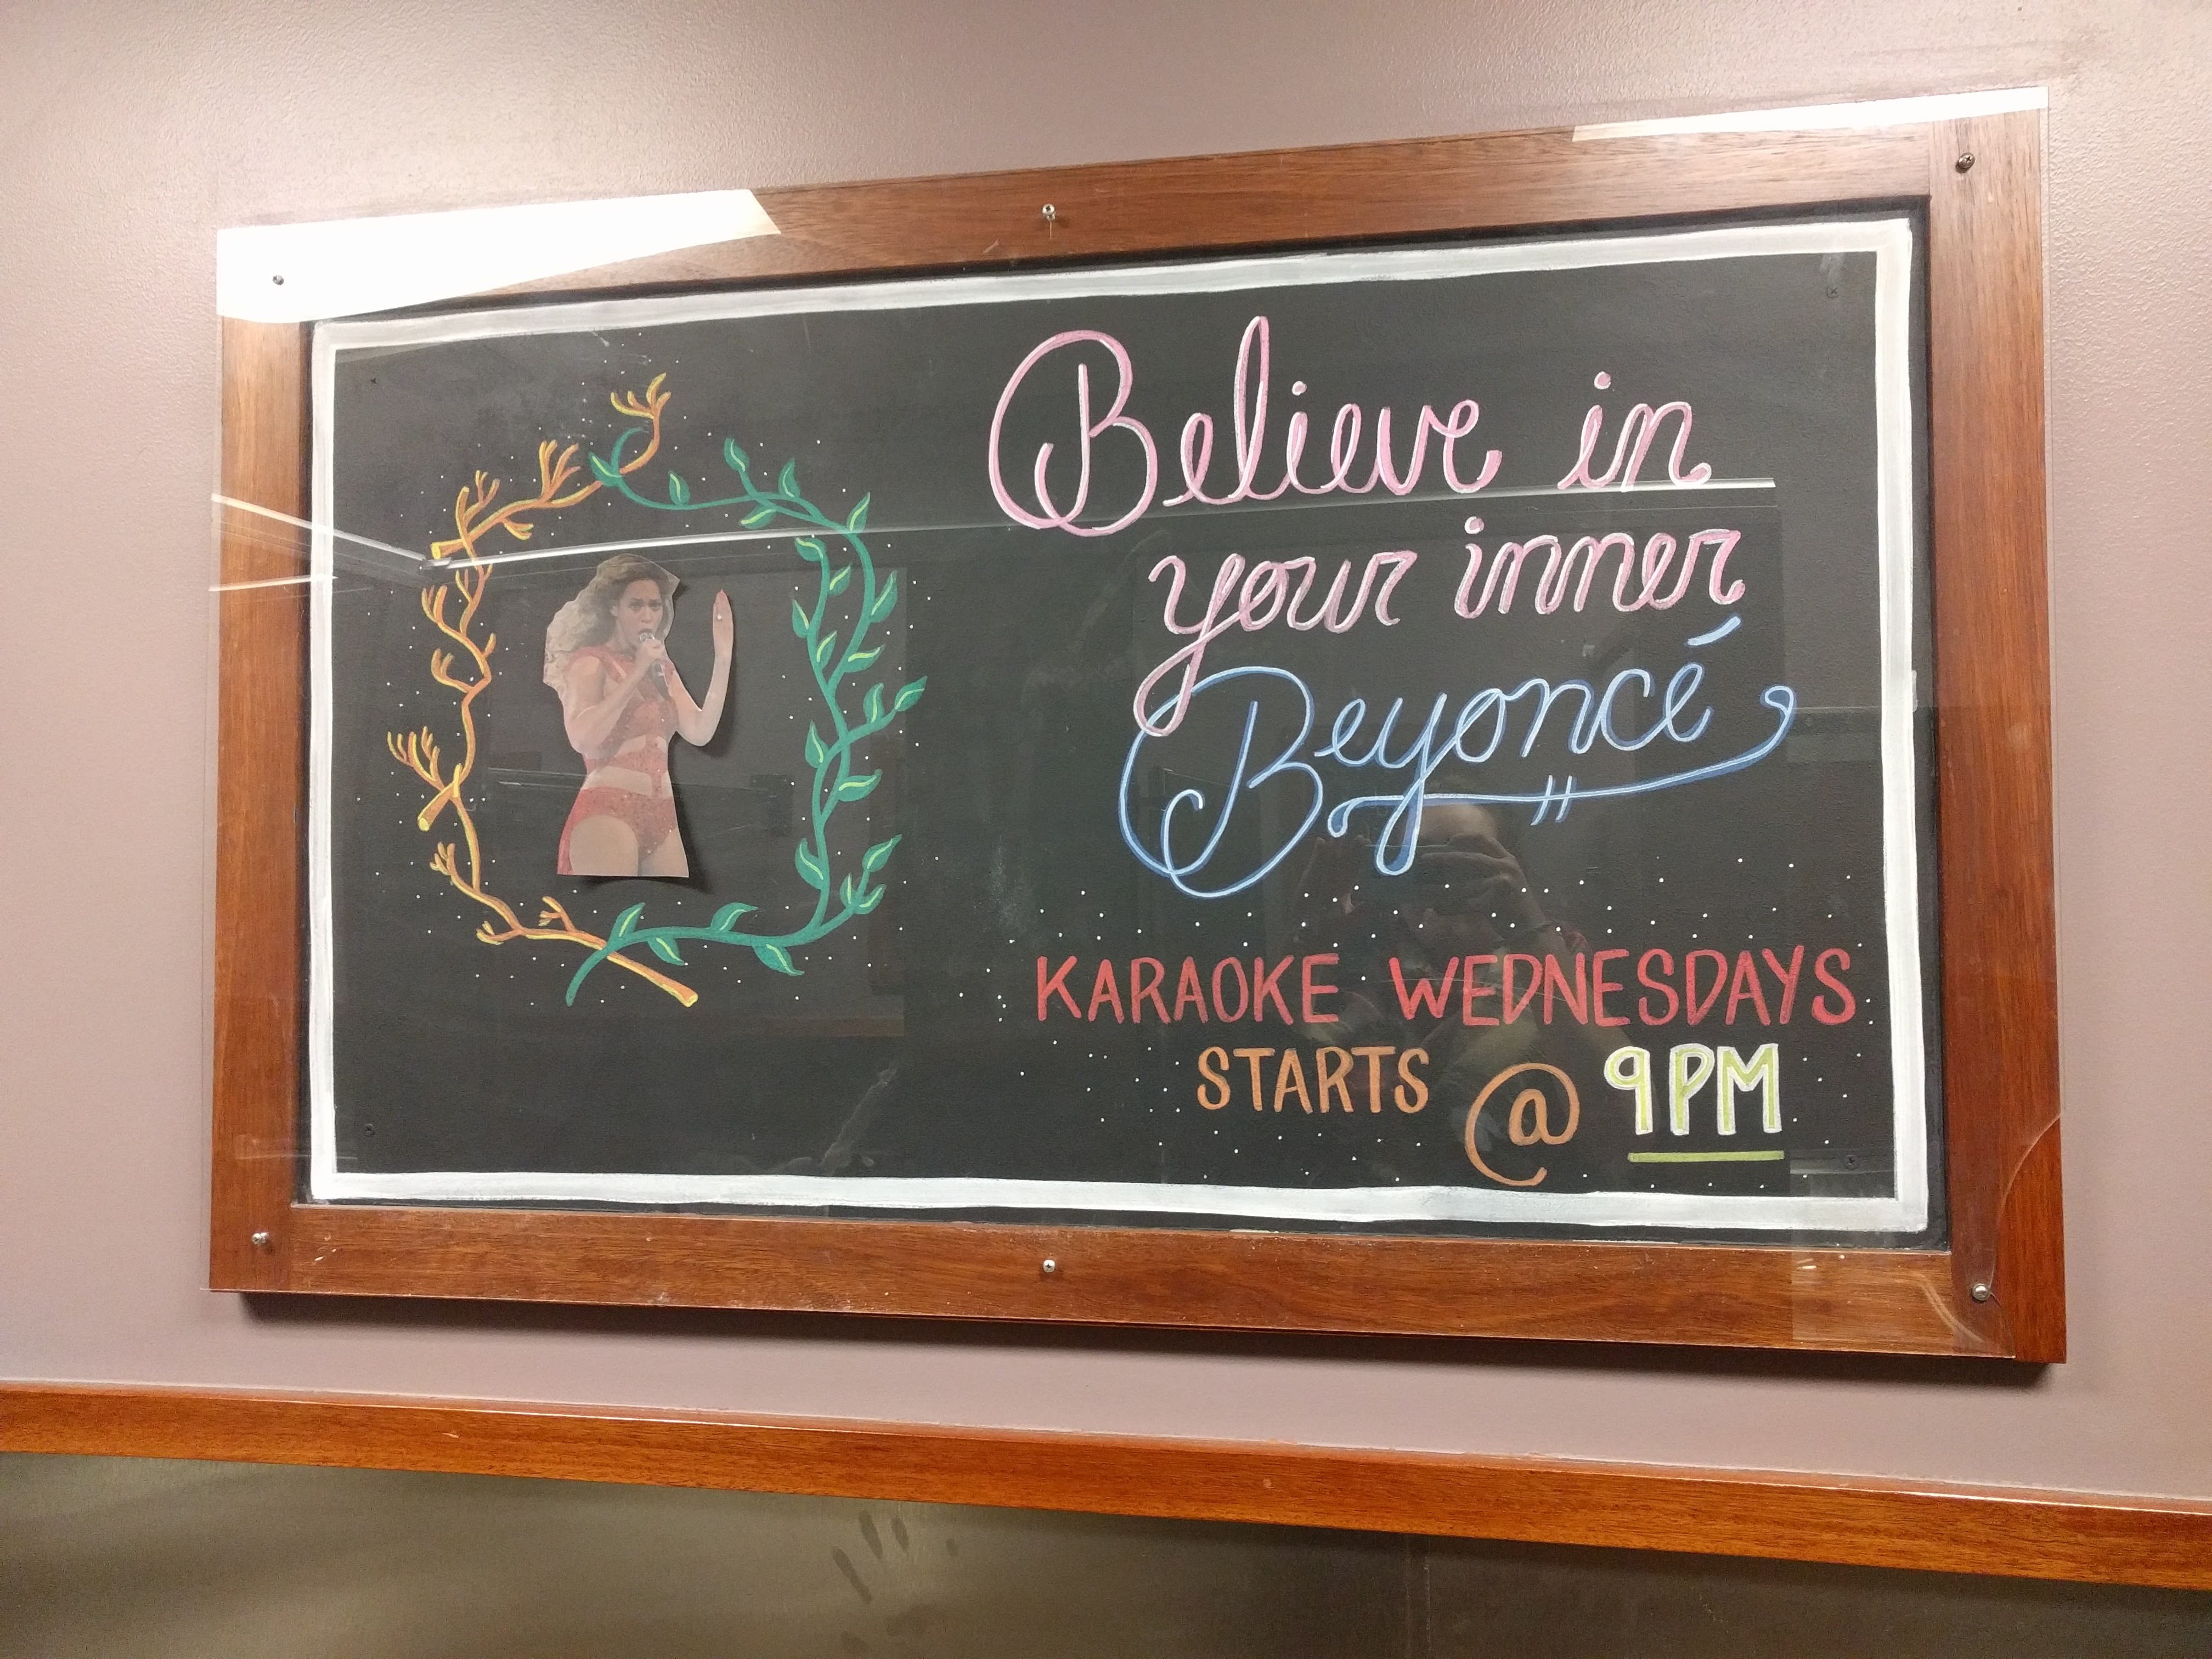 Believe in
your inner
Beyoncé
KARAOKE WEDNESDAYS
STARTS @ 9PM